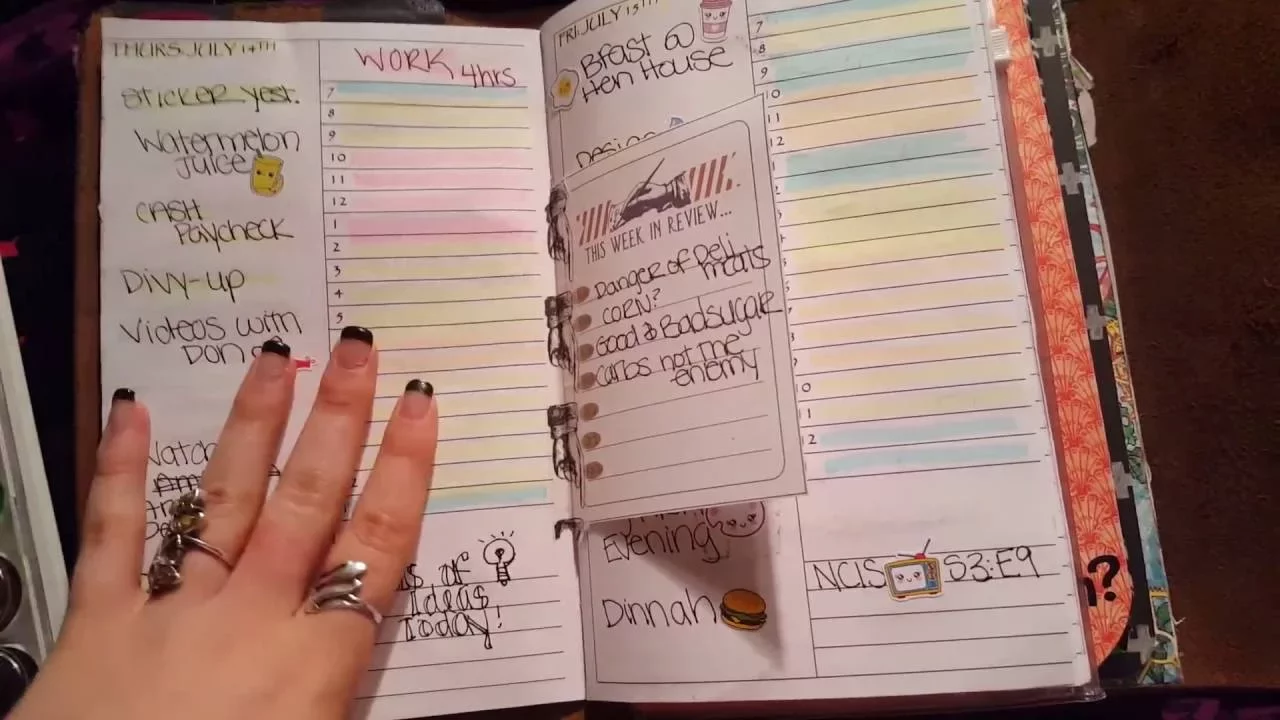 THURS. JULY 14TH
STICKER YEST.
Watermelon
Juice
CASH
Paycheck
Divy-up
Videos with
Don
WORK 4hrs
7
8
9
10
11
12
1
2
3
4
5
Ideas
Today!
FRI. JULY 15TH
Bfast @
Hen House
Design
THIS WEEK IN REVIEW...
Danger of Deli
meats
CORN?
Good & Bad sugar
Carbs not the
enemy
Evening
Dinnah
7
8
9
10
11
12
10
11
12
NCIS S3:E9
?